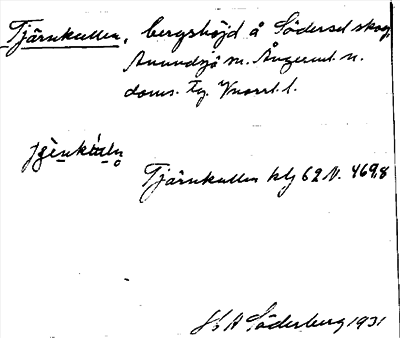 Tjärnkullen, bergshöjd å Södersel skog
Anundsjö sn. Ångerml. n.
doms. tg. Vnorrl. l.
Tjärnkullen hlj 62 N. 469,8
H A Söderberg 1931